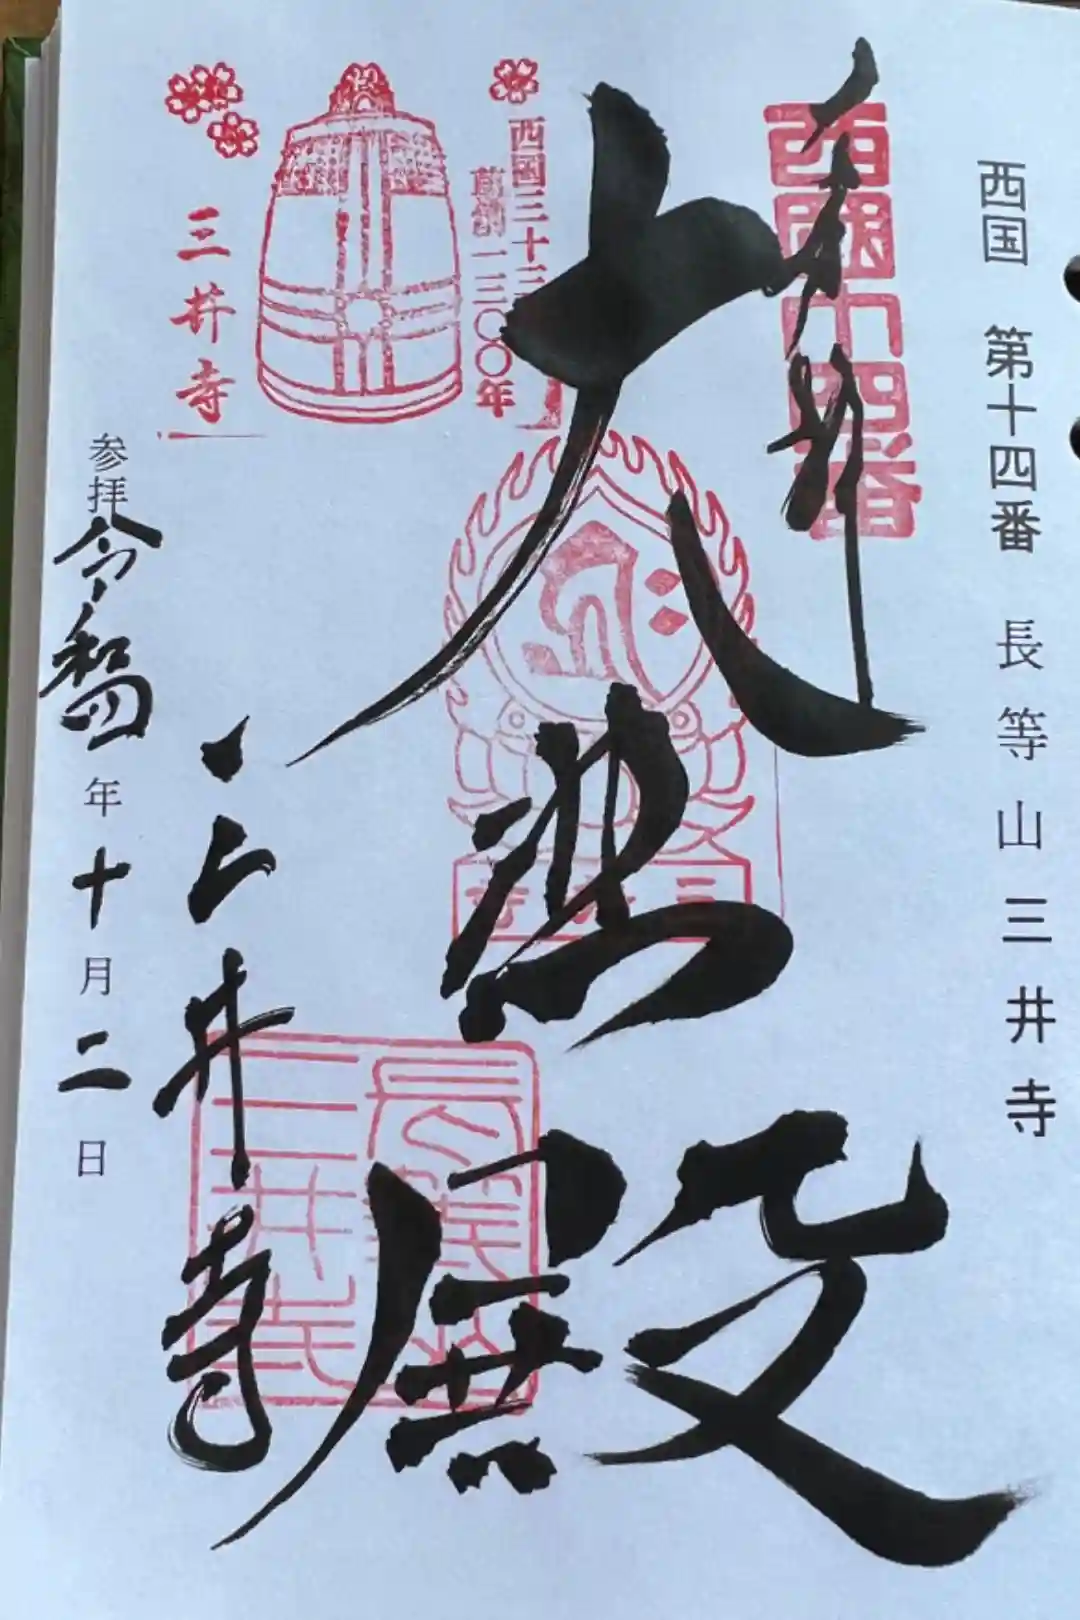 西国 第十四番 長等山 三井寺
奉拝
西國十四番
大悲殿
西国三十三
草創一三〇〇年
三井寺
三井寺
三井寺
三井寺
参拝 令和四年十月二日